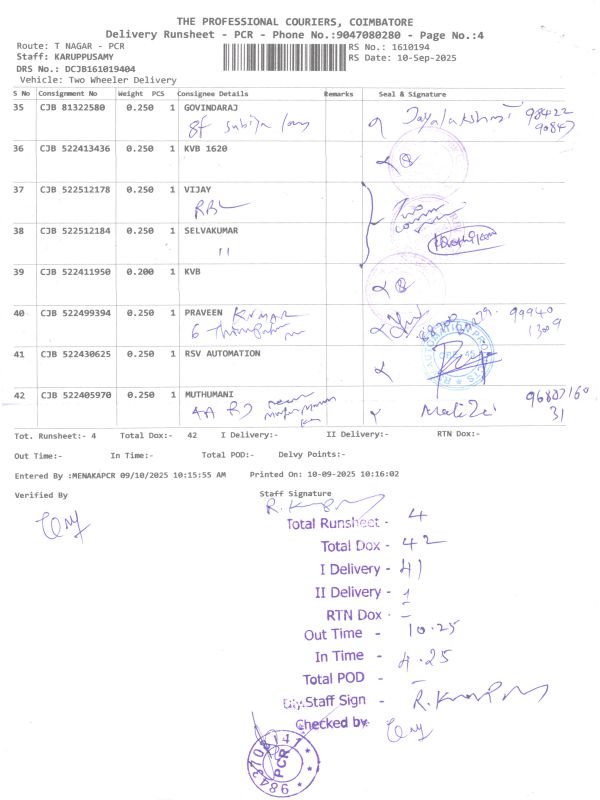 THE PROFESSIONAL COURIERS, COIMBATORE
Delivery Runsheet - PCR - Phone No.:9047080280 - Page No.:4
Route: T NAGAR - PCR RS No.: 1610194
Staff: KARUPPUSAMY RS Date: 10-Sep-2025
DRS No.: DCJB161019404
Vehicle: Two Wheeler Delivery
S No Consignment No Weight PCS Consignee Details Remarks Seal & Signature
35 CJB 81322580 0.250 1 GOVINDARAJ Jayalakshmi 98422
36 CJB 522413436 0.250 1 KVB 1620
37 CJB 522512178 0.250 1 VIJAY Two
RBL
38 CJB 522512184 0.250 1 SELVAKUMAR
11
39 CJB 522411950 0.200 1 KVB
40 CJB 522499394 0.250 1 PRAVEEN KUMAR 99940
6
41 CJB 522430625 0.250 1 RSV AUTOMATION
42 CJB 522405970 0.250 1 MUTHUMANI
31
Tot. Runsheet:- 4 Total Dox:- 42 I Delivery:- II Delivery:- RTN Dox:-
Out Time:- In Time:- Total POD:- Delvy Points:-
Entered By :MENAKAPCR 09/10/2025 10:15:55 AM Printed On: 10-09-2025 10:16:02
Verified By Staff Signature
Total Runsheet - 4
Total Dox - 42
I Delivery - 41
II Delivery - 1
RTN Dox - -
Out Time - 10.25
In Time - 4.25
Total POD -
Dly.Staff Sign -
Checked by
PCR